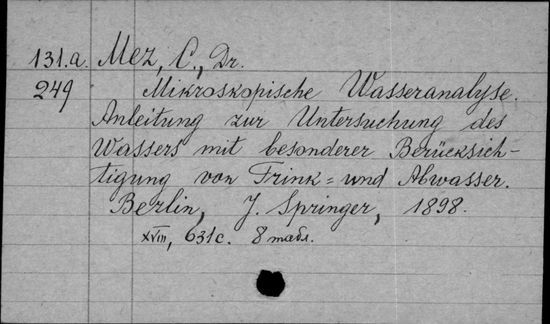 131.a. Mez, C., Dr.
249 Mikroskopische Wasseranalyse.
Anleitung zur Untersuchung des
Wassers mit besonderer Berücksich-
tigung von Trink= und Abwasser.
Berlin, J. Springer, 1898.
XVIII, 631c. 8 табл.